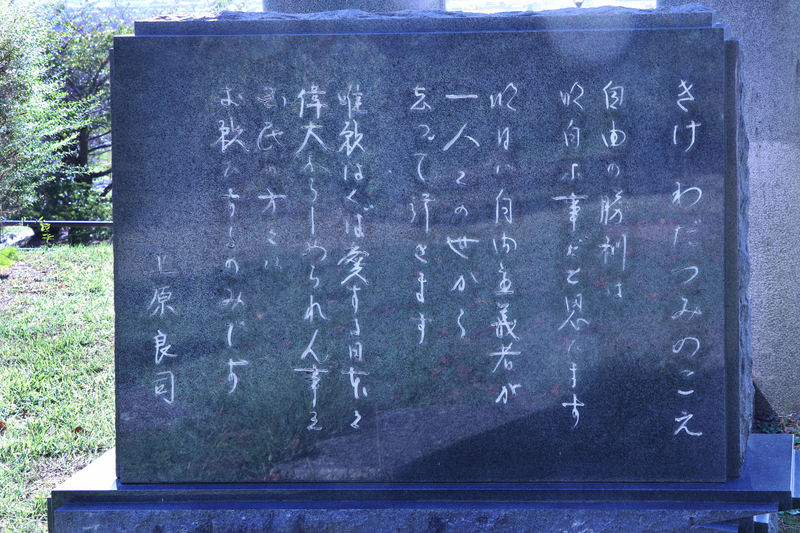 きけ わだつみのこえ
自由の勝利は
明白な事だと思ひます
明日は自由主義者が
一人この世から
去つて行きます
唯願はくば愛する日本を
偉大ならしめられん事を
国民の方々に
お願ひするのみです
上原良司